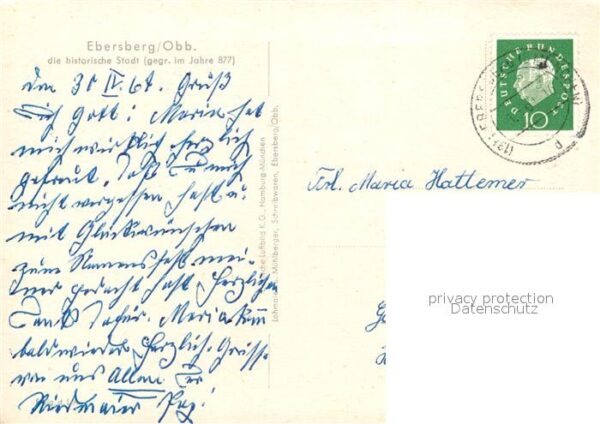 Ebersberg/Obb.
die historische Stadt (gegr. im Jahre 877)
Den 30 IV. 61. Grüß
Dich Gott! Maria hat
mich wirklich herzlich
gefreut, daß Du mich
nicht vergessen hast u.
mit Glückwünschen
zum Namensfest mei-
ner gedacht hast herzlichen
Dank dafür. Maria komm
bald wieder herzlich. Grüsse
von uns Allen Der
Riedmaier
Luftbild K.G., Hamburg-München
Mühlberger, Schreibwaren, Ebersberg/Obb.
DEUTSCHE BUNDESPOST
10
EBERSBERG
(13b)
d
Frl. Maria Hattemer
privacy protection
Datenschutz